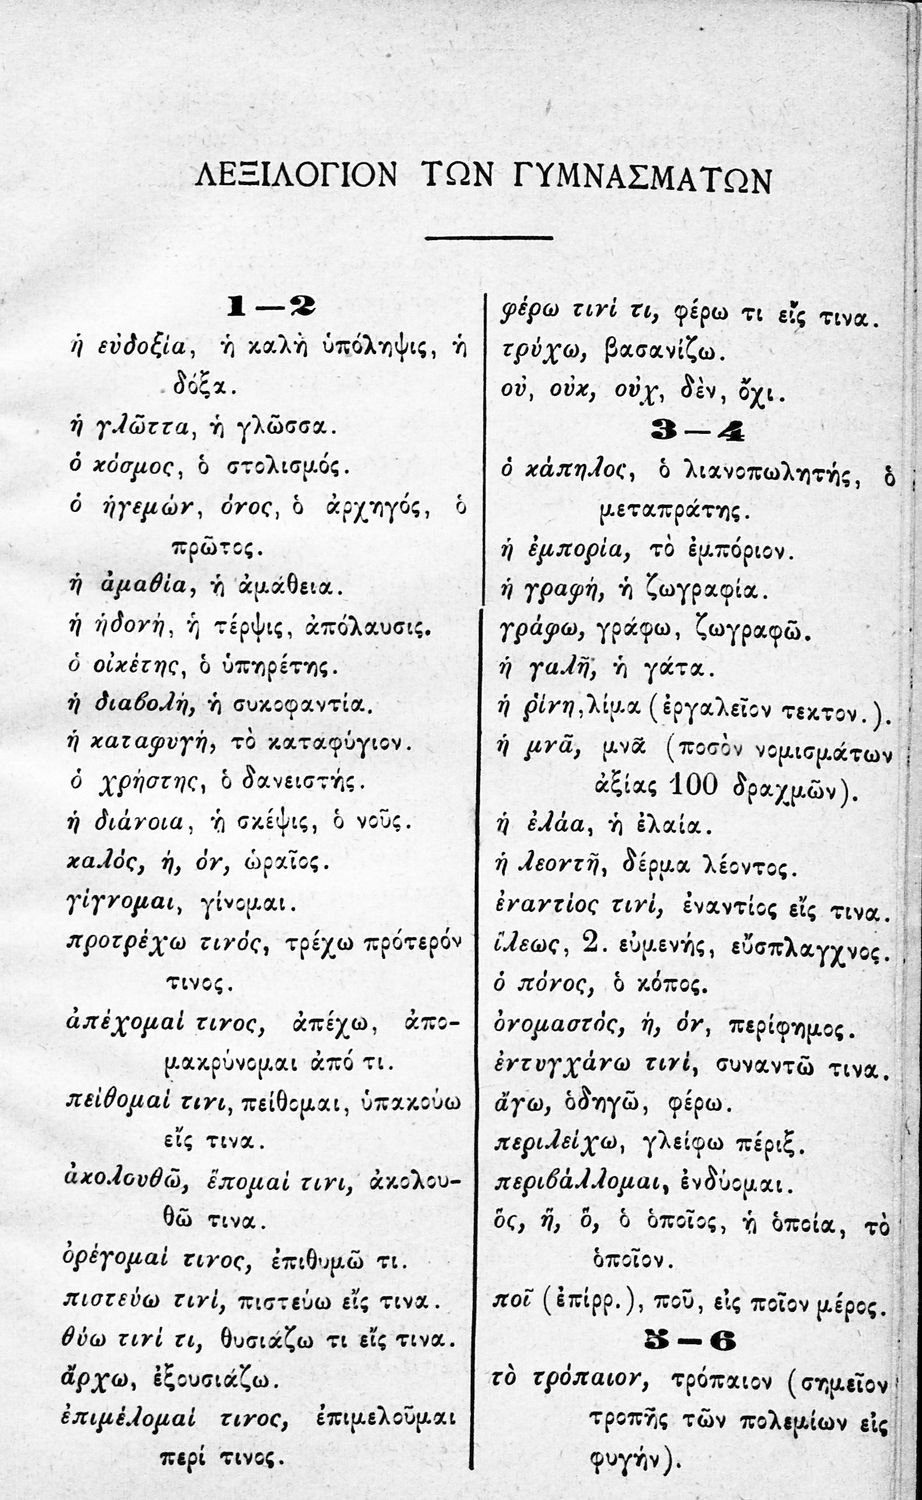 ΛΕΞΙΛΟΓΙΟΝ ΤΩΝ ΓΥΜΝΑΣΜΑΤΩΝ
1—2
ἡ εὐδοξία, ἡ καλὴ ὑπόληψις, ἡ
δόξα.
ἡ γλῶττα, ἡ γλῶσσα.
ὁ κόσμος, ὁ στολισμός.
ὁ ἡγεμών, όνος, ὁ ἀρχηγός, ὁ
πρῶτος.
ἡ ἀμαθία, ἡ ἀμάθεια.
ἡ ἡδονή, ἡ τέρψις, ἀπόλαυσις.
ὁ οἰκέτης, ὁ ὑπηρέτης.
ἡ διαβολή, ἡ συκοφαντία.
ἡ καταφυγή, τὸ καταφύγιον.
ὁ χρήστης, ὁ δανειστής.
ἡ διάνοια, ἡ σκέψις, ὁ νοῦς.
καλός, ή, όν, ὡραῖος.
γίγνομαι, γίνομαι.
προτρέχω τινός, τρέχω πρότερόν
τινος.
ἀπέχομαί τινος, ἀπέχω, ἀπο-
μακρύνομαι ἀπό τι.
πείθομαί τινι, πείθομαι, ὑπακούω
εἴς τινα.
ἀκολουθῶ, ἕπομαί τινι, ἀκολου-
θῶ τινα.
ὀρέγομαί τινος, ἐπιθυμῶ τι.
πιστεύω τινί, πιστεύω εἴς τινα.
θύω τινί τι, θυσιάζω τι εἴς τινα.
ἄρχω, ἐξουσιάζω.
ἐπιμέλομαί τινος, ἐπιμελοῦμαι
περί τινος.
φέρω τινί τι, φέρω τι εἴς τινα.
τρύχω, βασανίζω.
οὐ, οὐκ, οὐχ, δὲν, ὄχι.
3—4
ὁ κάπηλος, ὁ λιανοπωλητής, ὁ
μεταπράτης.
ἡ ἐμπορία, τὸ ἐμπόριον.
ἡ γραφή, ἡ ζωγραφία.
γράφω, γράφω, ζωγραφῶ.
ἡ γαλῆ, ἡ γάτα.
ἡ ῥίνη, λίμα (ἐργαλεῖον τεκτον.).
ἡ μνᾶ, μνᾶ (ποσὸν νομισμάτων
ἀξίας 100 δραχμῶν).
ἡ ἐλάα, ἡ ἐλαία.
ἡ λεοντῆ, δέρμα λέοντος.
ἐναντίος τινί, ἐναντίος εἴς τινα.
ἵλεως, 2. εὐμενής, εὔσπλαγχνος.
ὁ πόνος, ὁ κόπος.
ὀνομαστός, ή, όν, περίφημος.
ἐντυγχάνω τινί, συναντῶ τινα.
ἄγω, ὁδηγῶ, φέρω.
περιλείχω, γλείφω πέριξ.
περιβάλλομαι, ἐνδύομαι.
ὅς, ἥ, ὅ, ὁ ὁποῖος, ἡ ὁποία, τὸ
ὁποῖον.
ποῖ (ἐπίρρ.), ποῦ, εἰς ποῖον μέρος.
5—6
τὸ τρόπαιον, τρόπαιον (σημεῖον
τροπῆς τῶν πολεμίων εἰς
φυγήν).